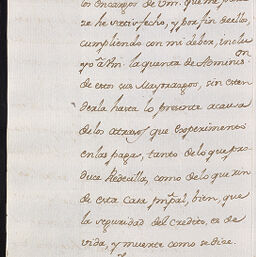 los encargos de Vm. que me
se ha satisfecho, y por fin de ello,
cumpliendo con mi deber, inclu
yo a Vm. la quenta de Adminis.on
de estos sus Mayorazgos, sin esten
derla hasta lo presente a causa
de los atrasos que experimento
en las pagas, tanto de lo que pro
duce Redecilla, como de lo que rin
de esta Casa pral, bien, que
la seguridad del credito, es de
vida, y muerte como se dice.